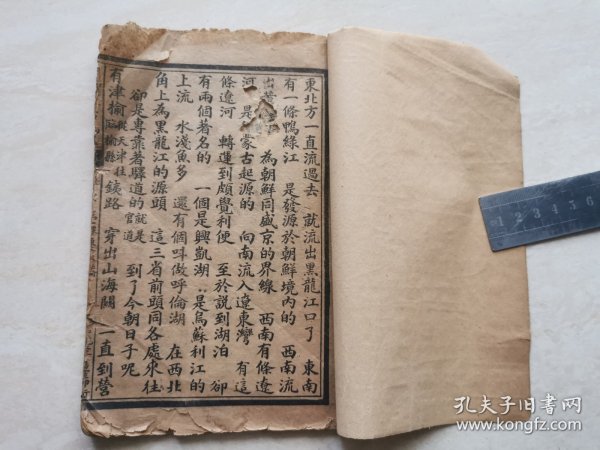 東北方一直流過去 就流出黑龍江口了 東南
有一條鴨綠江 是發源於朝鮮境內的 西南流
為朝鮮同盛京的界線 西南有條遼
河 是蒙古起源的 向南流入遼東灣 有這
條遼河 轉運到頗覺利便 至於說到湖泊 卻
有兩個著名的 一個是興凱湖 是烏蘇利江的
上流 水淺魚多 還有個叫做呼倫湖 在西北
角上為黑龍江的源頭 這三省前頭同各處來往
卻是專靠著驛道的 就是官道 到了今朝日子呢
有津榆 從天津往臨榆縣 鐵路 穿出山海關 一直到營
1 2 3 4 5 6
孔夫子旧书网
www.kongfz.com